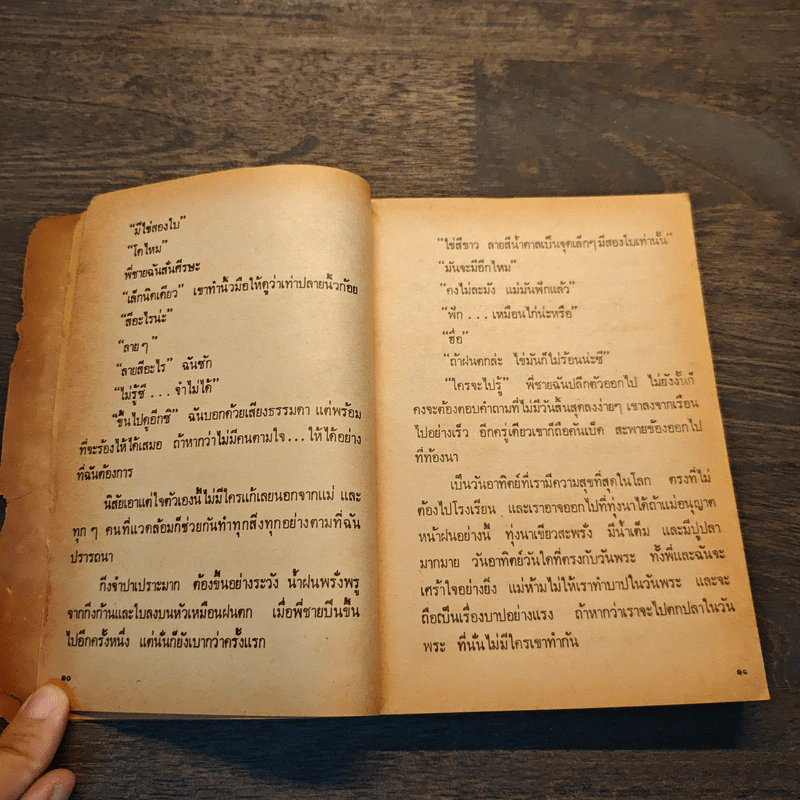 “มีไข่สองใบ”
“โตไหม”
พี่ชายฉันสั่นศีรษะ
“เล็กนิดเดียว” เขาทำนิ้วมือให้ดูว่าเท่าปลายนิ้วก้อย
“สีอะไรน่ะ”
“ลายๆ”
“ลายสีอะไร” ฉันซัก
“ไม่รู้ซี...จำไม่ได้”
“ขึ้นไปดูอีกซี” ฉันบอกด้วยเสียงธรรมดา แต่พร้อม
ที่จะร้องไห้ได้เสมอ ถ้าหากว่าไม่มีคนตามใจ...ให้ได้อย่าง
ที่ฉันต้องการ
นิสัยเอาแต่ใจตัวเองนี้ไม่มีใครแก้เลยนอกจากแม่ และ
ทุกๆ คนที่แวดล้อมก็ช่วยกันทำทุกสิ่งทุกอย่างตามที่ฉัน
ปรารถนา
กิ่งจำปาเปราะมาก ต้องขึ้นอย่างระวัง น้ำฝนพรั่งพรู
จากกิ่งก้านและใบลงบนหัวเหมือนฝนตก เมื่อพี่ชายปีนขึ้น
ไปอีกครั้งหนึ่ง แต่นั่นก็ยังเบากว่าครั้งแรก
๑๐
“ไข่สีขาว ลายสีน้ำตาลเป็นจุดเล็กๆ มีสองใบเท่านั้น”
“มันจะมีอีกไหม”
“คงไม่ละมัง แม่มันฟักแล้ว”
“ฟัก...เหมือนไก่น่ะหรือ”
“ฮื่อ”
“ถ้าฝนตกล่ะ ไข่มันก็ไม่ร้อนน่ะซี”
“ใครจะไปรู้” พี่ชายฉันปลีกตัวออกไป ไม่ยังงั้นก็
คงจะต้องตอบคำถามที่ไม่มีวันสิ้นสุดลงง่ายๆ เขาลงจากเรือน
ไปอย่างเร็ว อีกครู่เดียวเขาก็ถือคันเบ็ด สะพายข้องออกไป
ที่ท้องนา
เป็นวันอาทิตย์ที่เรามีความสุขที่สุดในโลก ตรงที่ไม่
ต้องไปโรงเรียน และเราอาจออกไปที่ทุ่งนาได้ถ้าแม่อนุญาต
หน้าฝนอย่างนี้ ทุ่งนาเขียวสะพรั่ง มีน้ำเต็ม และมีปูปลา
มากมาย วันอาทิตย์วันใดที่ตรงกับวันพระ ทั้งพี่และฉันจะ
เศร้าใจอย่างยิ่ง แม่ห้ามไม่ให้เราทำบาปในวันพระ และจะ
ถือเป็นเรื่องบาปอย่างแรง ถ้าหากว่าเราจะไปตกปลาในวัน
พระ ที่นั่นไม่มีใครเขาทำกัน
๑๑